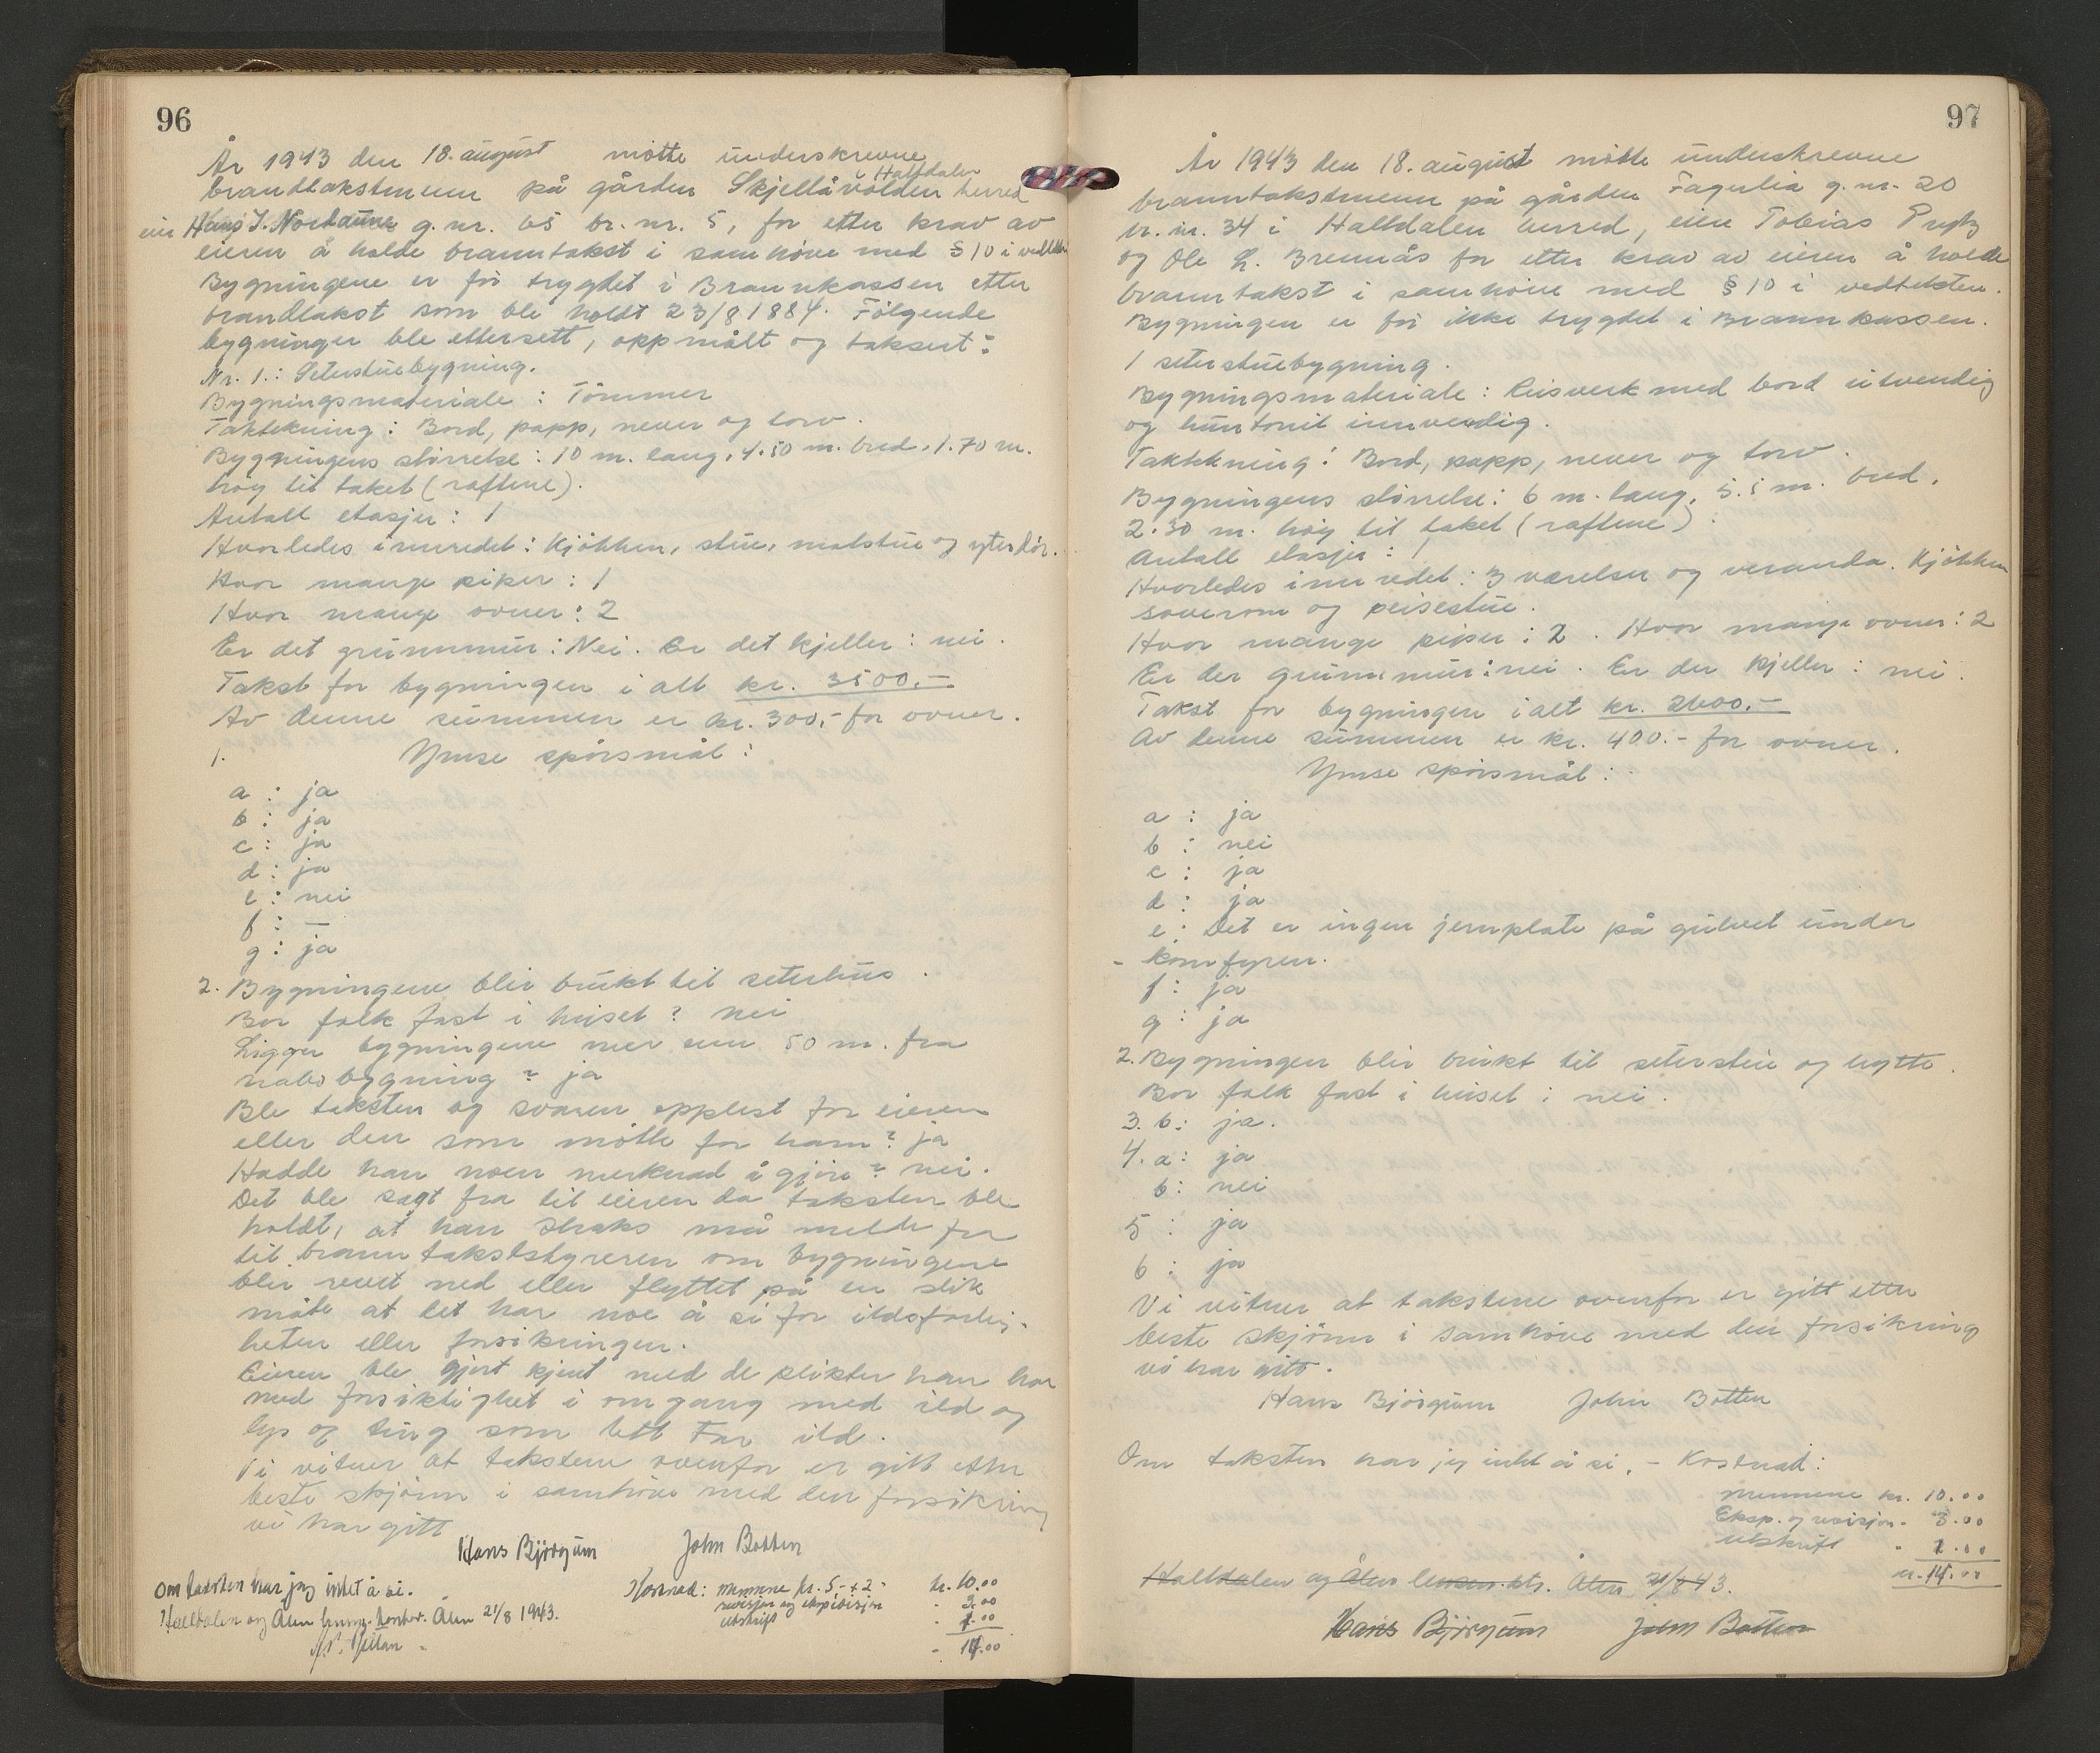 96
År 1943 den 18. august møtte underskrevne
brandtakstmenn på gården Skjellåvolden i Haltdalen herred
eier Hans J. Nordaune g.nr. 65 br.nr. 5, for etter krav av
eieren å holde branntakst i samhøve med § 10 i vedtekten
Bygningene er før trygdet i Brannkassen etter
brandtakst som ble holdt 23/8 1884. Følgende
bygninger ble ettersett, oppmålt og taksert:
Nr. 1.: Seterstuebygning.
Bygningsmateriale: Tømmer
Taktekning: Bord, papp, never og torv.
Bygningens størrelse: 10 m. lang, 4.50 m. bred, 1.70 m.
høy til taket (raftene).
Antall etasjer: 1
Hvorledes innredet: Kjøkken, stue, matstue og
Hvor mange piper: 1
Hvor mange ovner: 2
Er det grunnmur: Nei. Er det kjeller: nei.
Takst for bygningen i alt kr. 3500.-
Av denne summen er kr. 300,- for ovner.
1. Ymse spørsmål:
a: ja
b: ja
c: ja
d: ja
e: nei
f: —
g: ja
2. Bygningene blir brukt til seterhus.
Bor folk fast i huset? nei
Ligger bygningene mer enn 50 m. fra
nabobygning? ja
Ble taksten og svaren opplest for eieren
eller den som møtte for ham? ja
Hadde han noen merknad å gjøre? nei.
Det ble sagt fra til eieren da taksten ble
holdt, at han straks må melde fra
til branntakststyreren om bygningene
blir revet ned eller flyttet på en slik
måte at det har noe å si for ildsfarlig-
heten eller forsikringen.
Eieren ble gjort kjent med de plikter han har
med forsiktighet i omgang med ild og
lys og ting som lett tar ild.
Vi vitner at takstene ovenfor er gitt etter
beste skjønn i samhøve med den forsikring
vi har gitt
Hans Bjørgum John Botten
Om taksten har jeg intet å si.
Haltdalen og Ålen lensm. kontor. Ålen 21/8 1943.
Kostnad: mennene kr. 5,- + 2 - kr. 10.00
revisjon og ekspedisjon - 3.00
utskrift - 1.00
- 14.00
97
År 1943 den 18. august møtte underskrevne
branntakstmenn på gården Fagerlia g.nr. 20
br.nr. 34 i Haltdalen herred, eier Tobias Prytz
og Ole L. Brennås for etter krav av eieren å holde
branntakst i samhøve med § 10 i vedtekten.
Bygningen er før ikke trygdet i Brannkassen.
1 seterstuebygning.
Bygningsmateriale: Reisverk med bord utvendig
og huntonit innvendig.
Taktekning: Bord, papp, never og torv.
Bygningens størrelse: 6 m. lang, 5.5 m. bred,
2.30 m. høy til taket (raftene).
Antall etasjer: 1
Hvorledes innredet: 3 værelser og veranda. Kjøkken
soverom og peisestue.
Hvor mange piper: 2. Hvor mange ovner: 2
Er der grunnmur: nei. Er der kjeller: nei.
Takst for bygningen i alt kr. 2600.-
Av denne summen er kr. 400.- for ovner.
Ymse spørsmål:
a: ja
b: nei
c: ja
d: ja
e: Det er ingen jernplate på gulvet under
- komfyren.
f: ja
g: ja
2. Bygningen blir brukt til seterstue og hytte.
Bor folk fast i huset: nei.
3. b: ja.
4. a: ja
b: nei
5: ja
6: ja
Vi vitner at takstene ovenfor er gitt etter
beste skjønn i samhøve med den forsikring
vi har gitt.
Hans Bjørgum John Botten
Om taksten har jeg intet å si. - Kostnad:
mennene kr. 10.00
Eksp. og revisjon - 3.00
utskrift - 1.00
kr. 14.00
Haltdalen og Ålen lensm.ktr. Ålen 21/8 43.
Hans Bjørgum John Botten